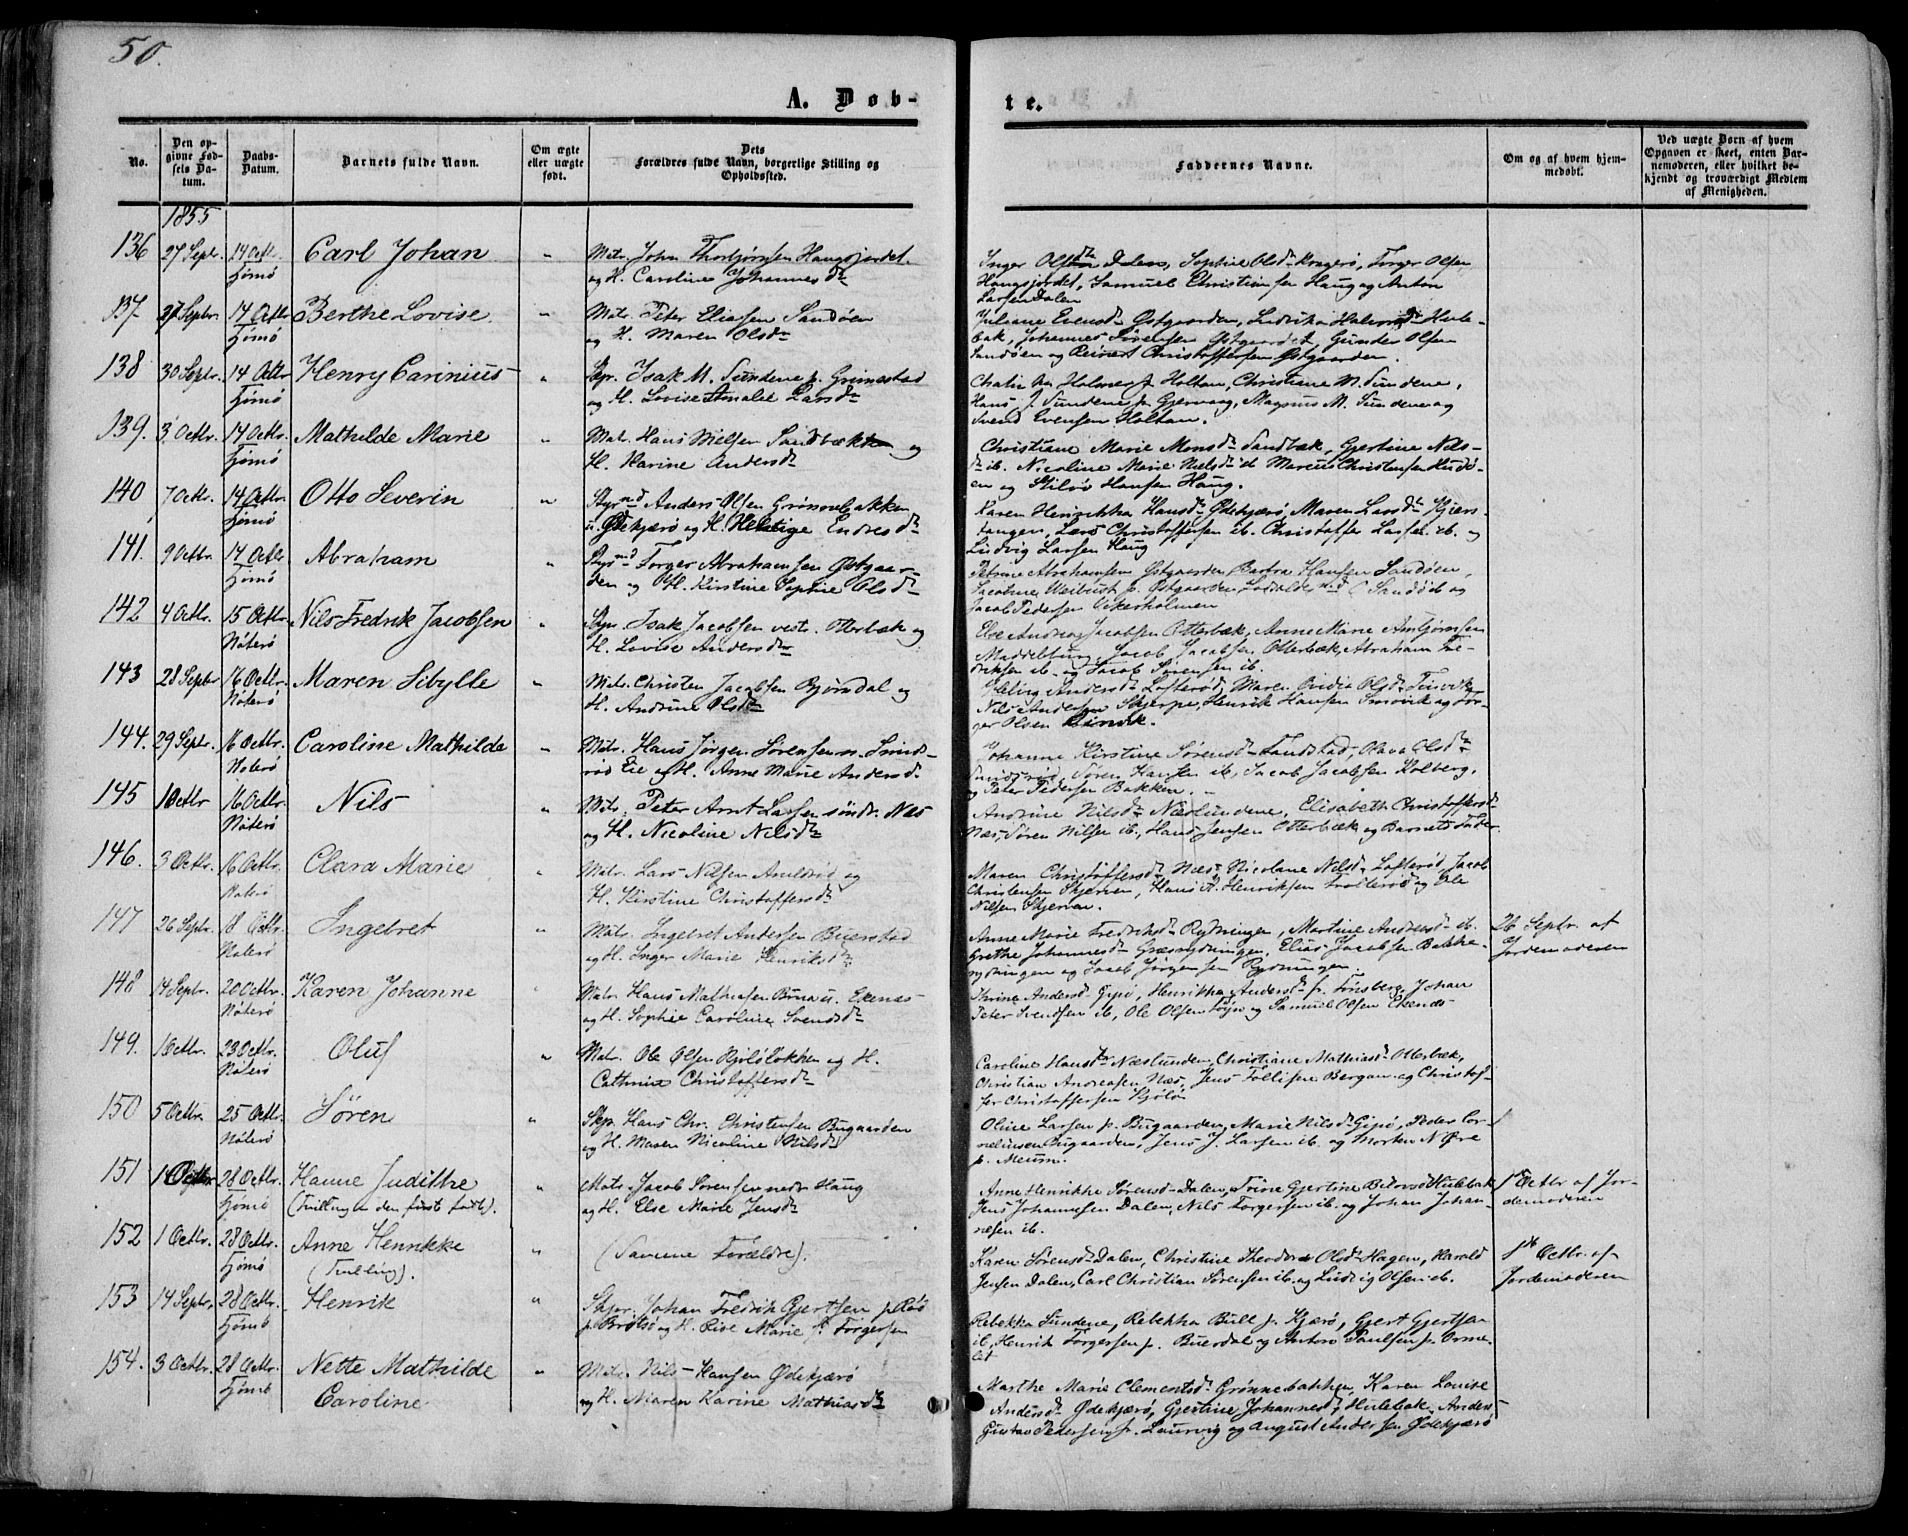 50.
A. Døb-
te.
No.
Den op-
givne Fød-
sels Da-
tum.
Daabs-
Datum.
Barnets fulde Navn.
Om ægte
eller uægte
født.
Dets
Forældres fulde Navn, borgerlige Stilling og
Opholdssted.
Faddernes Navne.
Om og af hvem hjem-
medøbt.
Ved uægte Børn af hvem
Opgaven er skeet, enten Bar-
nemoderen, eller hvilket be-
kjendt og troværdigt Medlem
af Menigheden.
1855
136 27 Septr. 14 Octr. Carl Johan " Matr. John Thorbjørnsen Haugsjordet
Tjømø og H. Caroline Johannesdr
Inger Olsdr Sophie Olsdr Kragerø, Torger Olsen
Haugsjordet, Samuel Christiansen Haug og Anton
Larsen Dalen
137 27 Septr. 14 Octbr Berthe Lovise " Matr. Peter Eliasen Sandøen
Tjømø og H. Maren Olsdr
Juliane Evensdr Østgaarden, Hule-
bak, Johannes Sørensen Østgaardet, Gunder Olsen
Sandøen og Reinert Christoffersen Østgaarden.
138 30 Septr. 14 Octbr Henry Carinius " Skpr. Isak M. Sundene p. Grimestad
Tjømø og H. Lovise Amalie Larsdr
Holmer p. Holtan, Christiane M. Sundene,
Hans J. Sundene p. Gjervaag, Magnus M. Sundene og
Svend Evensen Holtan.
139. 3 Octbr. 14 Octbr. Mathilde Marie " Matr. Hans Nielsen Sandbæk og
Tjømø H. Karine Andersdr
Christiane Marie Monsdr Sandbæk, Gjertine Nils-
dr ib. Nicoline Marie Nielsdr ib Marcus Christensen Hudø-
en og Hansen Haug.
140 7 Octbr. 14 Octbr. Otto Severin " Styrmd Anders Olsen Grønnebakken
Tjømø u. Ødekjærø og H. Endresdr
Karen Henrikka Hansdr Ødekjærø, Maren Larsdr Kjærs-
tangen, Lars Christoffersen ib. Christoffer Larsen ib. og
Ludvig Larsen Haug
141. 9 Octbr. 14 Octbr Abraham " Styrmd Torger Abrahamsen Østgaar-
Tjømø den og H. Kirstine Sophie Olsdr
Petrine Abrahamsen Østgaarden, Hansen Sandøen,
Jacobine Weibust p. Østgaarden, Sandø ib og
Jacob Pedersen
142 4 Octbr. 15 Octbr Nils Fredrik Jacobsen " Styr. Isak Jacobsen vestr. Otterbæk og
Nøterø H. Lovise Andersdr
Else Andrea Jacobsen Otterbæk, Anne Marie
Jacob Jacobsen Otterbæk, Abraham Fre-
driksen ib. og Jacob Sørensen ib.
143 28 Septbr 16 Octbr. Maren Sibylle " Matr. Christen Jacobsen Bjørndal og
Nøterø H. Andrine Olsdr
Andersdr Lofterød, Maren Olsdr
Nils Andersen Skjerpe, Henrik Hansen og Tor-
ger Olsen
144. 29 Septr. 16 Octbr. Caroline Mathilde " Matr. Hans Jørgen Sørensen Smids-
Nøterø rød Eie og H. Anne Marie Andersdr.
Johanne Kirstine Sørensdr Olava Olsdr
Smidsrød, Søren Hansen ib, Jacob Jacobsen Kolberg,
og Peter Pedersen Bakken.
145 1 Octbr 16 Octbr. Nils " Matr. Peter Arnt Larsen søndr. Næs
Nøterø og H. Nicoline Nilsdr
Andrine Nilsdr Næslundene, Elisabeth Christoffersdr
Næs, Søren Nilsen ib., Hans Jensen Otterbæk og Barnets Fader
146. 3 Octbr. 16 Octbr. Clara Marie " Matr. Lars Nilsen og
Nøterø H. Kirstine Christoffersdr
Maren Christoffersdr Næs, Nicoline Nilsdr Lofterød, Jacob
Christensen Skjerven, Hans A. Henriksen og Ole
Nilsen Skjerven.
147 26 Septbr. 18 Octbr. Ingebret " Matr. Ingebret Andersen Buerstad
Nøterø og H. Inger Marie Henriksdr
Anne Marie Fredriksdr Rydningen, Martine Andersdr ib.
Grethe Johannesdr Græsrydningen, Elias Jacobsen Bakke-
rydningen og Jacob Jørgensen Rydningen.
26 Septbr. af
Jordemoderen
148 14 Septbr. 20 Octbr. Karen Johanne " Matr. Hans Mathiasen u. Ekenæs
Nøterø og H. Sophie Caroline Svendsdr
Andersdr Gipø, Henrikka Andersdr p. Tønsberg, Johan
Peter Svendsen ib, Ole Olsen og Samuel Olsen Ekenæs
149. 1 Octbr. 23 Octbr. Oluf " Matr. Ole Olsen Kjøløløkken og H.
Nøterø Cathrine Christoffersdr
Caroline Hansdr Næslunden, Christiane Mathiasdr Otterbæk,
Christian Andreasen Næs, Jens Bergan og Christof-
fer Christoffersen Kjølø
150 5 Octbr. 25 Octbr. Søren " Skpr. Hans Chr. Christensen Bugaarden
Nøterø og H. Maren Nicoline Nilsdr
Oline Larsen p. Bugaarden, Marie Nilsdr Gipø, Peder Cor-
neliussen Bugaarden, Jens J. Larsen ib. og Morten N. Øre
p. Meum.
151 1 Octbr 28 Octbr. Hanne Judithe " Matr. Jacob Sørensen nedr. Haug
Tjømø (Tvilling den først fødte). og H. Else Marie Jensdr
Anne Henrikke Sørensdr Dalen, Trine Gjertine Hulebak
Jens Johannesen Dalen, Nils Torgersen ib. og Johan Johan-
nesen ib.
1ste Octbr af Jor-
demoderen
152 1 Octbr. 28 Octbr. Anne Henrikke " (Samme Forældre).
Tjømø (Tvilling).
Karen Sørensdr Dalen, Christine Theodora Olsdr Hagen, Harald
Jensen Dalen, Carl Christian Sørensen ib. og Ludvig Olsen ib.
1ste Octbr. af
Jordemoderen
153 14 Septbr. 28 Octbr. Henrik " Skpr. Johan Fredrik Gjertsen p. Røs
Tjømø p. Brøtsø og H. Marie f. Torgersen
Rebekka Sundene, Rebekka Bull p. Kjærø, Gjert Gjertsen
ib, Henrik Torgersen p. Buerdal og Anton Paulsen p. Orme-
let
154. 3 Octbr. 28 Octbr. Nette Mathilde " Matr. Nils Hansen Ødekjærø
Tjømø Caroline og H. Maren Karine Mathiasdr
Marthe Marie Clementsdr Grønnebakken, Karen Louise
Andersdr Ødekjærø, Gjertine Johannesdr Hulebak, Anders
Gustav Pedersen p. Laurvig og August Andersen Ødekjærø